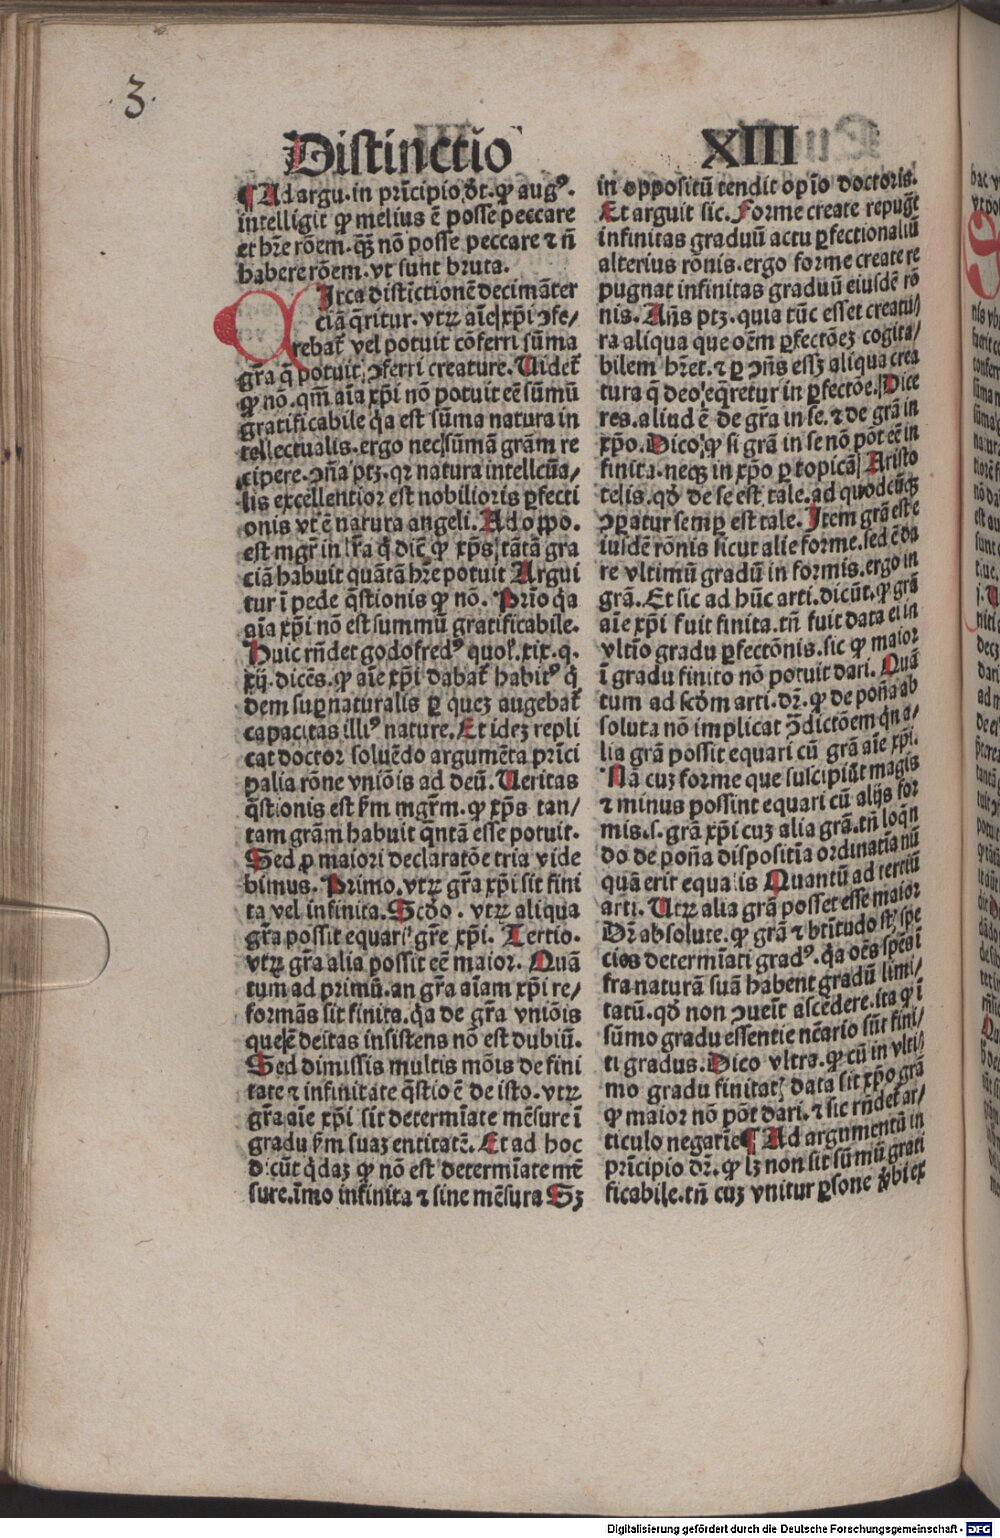 3.
Distinctio XIII
¶ Ad argu. in prīcipio dꝛ. ꝙ augꝰ.
intelligit ꝙ melius ē posse peccare
et hr̄e rōem. ꝙ̄ nō posse peccare ⁊ n̄
habere rōem. vt sunt bruta.
Irca distīctionē decimāter
ciā q̄ritur. vtꝝ aīe xp̄i ↄfe/
rebat᷑ vel potuit cōferri sūma
gr̄a q̄ potuit ↄferri creature. Uidet᷑
ꝙ nō. qm̄ aīa xp̄i nō potuit eē sūmū
gratificabile q̇a est sūma natura in
tellectualis. ergo nec sūmā grām re
cipere. ↄn̄a ptꝫ. qꝛ natura intellcūa/
lis excellentior est nobilioris ꝑfecti
onis vt ē natura angeli. Ad oppo.
est mgr̄ in lr̄a q̇ dīc ꝙ xp̄s tātā gra
ciā habuit quātā hr̄e potuit Argui
tur ī pede q̄stionis ꝙ nō. Prīo q̇a
aīa xp̄i nō est summū gratificabile.
Huic rn̄det godofredꝰ quol. xix. q.
xij. dicēs. ꝙ aīe xp̄i dabat᷑ habitꝰ q̇
dem suꝑnaturalis ꝑ queꝫ augebat᷑
capacitas illiꝰ nature. Et ideꝫ repli
cat doctor soluēdo argumēta prīci
palia rōne vniōis ad deū. Ueritas
q̄stionis est ẜm mgr̄m. ꝙ xp̄s tan/
tam grām habuit q̄ntā esse potuit.
Sed ꝓ maiori declaratōe tria vide
bimus. Primo. vtꝝ gr̄a xp̄i sit fini
ta vel infinita. Scd̄o. vtꝝ aliqua
gr̄a possit equari gr̄e xp̄i. Tertio.
vtꝝ gr̄a alia possit eē maior. Quā
tum ad primū. an gr̄a aīam xp̄i re/
formās sit finita. q̇a de gr̄a vniōis
que ē deitas insistens nō est dubiū.
Sed dimissis multis mōis de fini
tate ⁊ infinitate q̄stio ē de isto. vtꝝ
gr̄a aīe xp̄i sit determīate mēsure ī
gradu ẜm suaꝫ entitatē. Et ad hoc
dicūt q̇daꝫ ꝙ nō est determīate mē
sure. īmo infinita ⁊ sine mēsura Sꝫ
in oppositū tendit opīo doctoris.
Et arguit sic. Forme create repugt᷑
infinitas graduū actu ꝑfectionaliū
alterius rōnis. ergo forme create re
pugnat infinitas graduū eiusdē rō
nis. Añs ptꝫ. quia tūc esset creatu/
ra aliqua que oēm ꝑfectōeꝫ cogita/
bilem hr̄et. ⁊ ꝑ ↄn̄s essꝫ aliqua crea
tura q̄ deo eq̄retur in ꝑfectōe. Dice
res. aliud ē de gr̄a in se. ⁊ de grā in
xp̄o. Dico ꝙ si grā in se nō pōt eē in
finita. neqꝫ in xp̄o ꝑ topicā Aristo
telis. qd̄ de se est tale. ad quodcūqꝫ
ↄꝑatur semꝑ est tale. Item grā est e
iusdē rōnis sicut alie forme. sed ē da
re vltimū gradū in formis. ergo in
grā. Et sic ad hūc arti. dicūt. ꝙ grā
aīe xp̄i fuit finita. tn̄ fuit data ei in
vltīo gradu ꝑfectōnis. sic ꝙ maior
ī gradu finito nō potuit dari. Quā
tum ad scd̄m arti. dꝛ. ꝙ de poñaab
soluta nō implicat ↄ̄dictōem q̇n a/
lia grā possit equari cū grā aīe xp̄i.
Nā cuꝫ forme que suscipiūt magis
⁊ minus possint equari cū alijs for
mis. s. grā xp̄i cuꝫ alia grā. tn̄ loqn̄
do de poña dispositīa ordinatīa nū
quā erit equalis Quantū ad tertiū
arti. Utꝝ alia grā posset esse maior
Dꝛ absolute. ꝙ grā ⁊ btītudo stꝫ spe
cies determīati gradꝰ. q̇a oēs sp̄es ī
fra naturā suā habent gradū limi/
tatū. qd̄ non ↄueīt ascēdere. ita ꝙ ī
sūmo gradu essentie nc̄ario sūt fini/
ti gradus. Dico vltra. ꝙ cū in vlti/
mo gradu finitat᷑ data sit xp̄o grā
ꝙ maior nō pōt dari. ⁊ sic rn̄det᷑ ar/
ticulo negatīe ¶ Ad argumentū in
prīcipio dꝛ. ꝙ lꝫ non sit sūmū grati
ficabile. tn̄ cuꝫ vnitur ꝑsone v̄bi ex
Digitalisierung gefördert durch die Deutsche Forschungsgemeinschaft - DFG